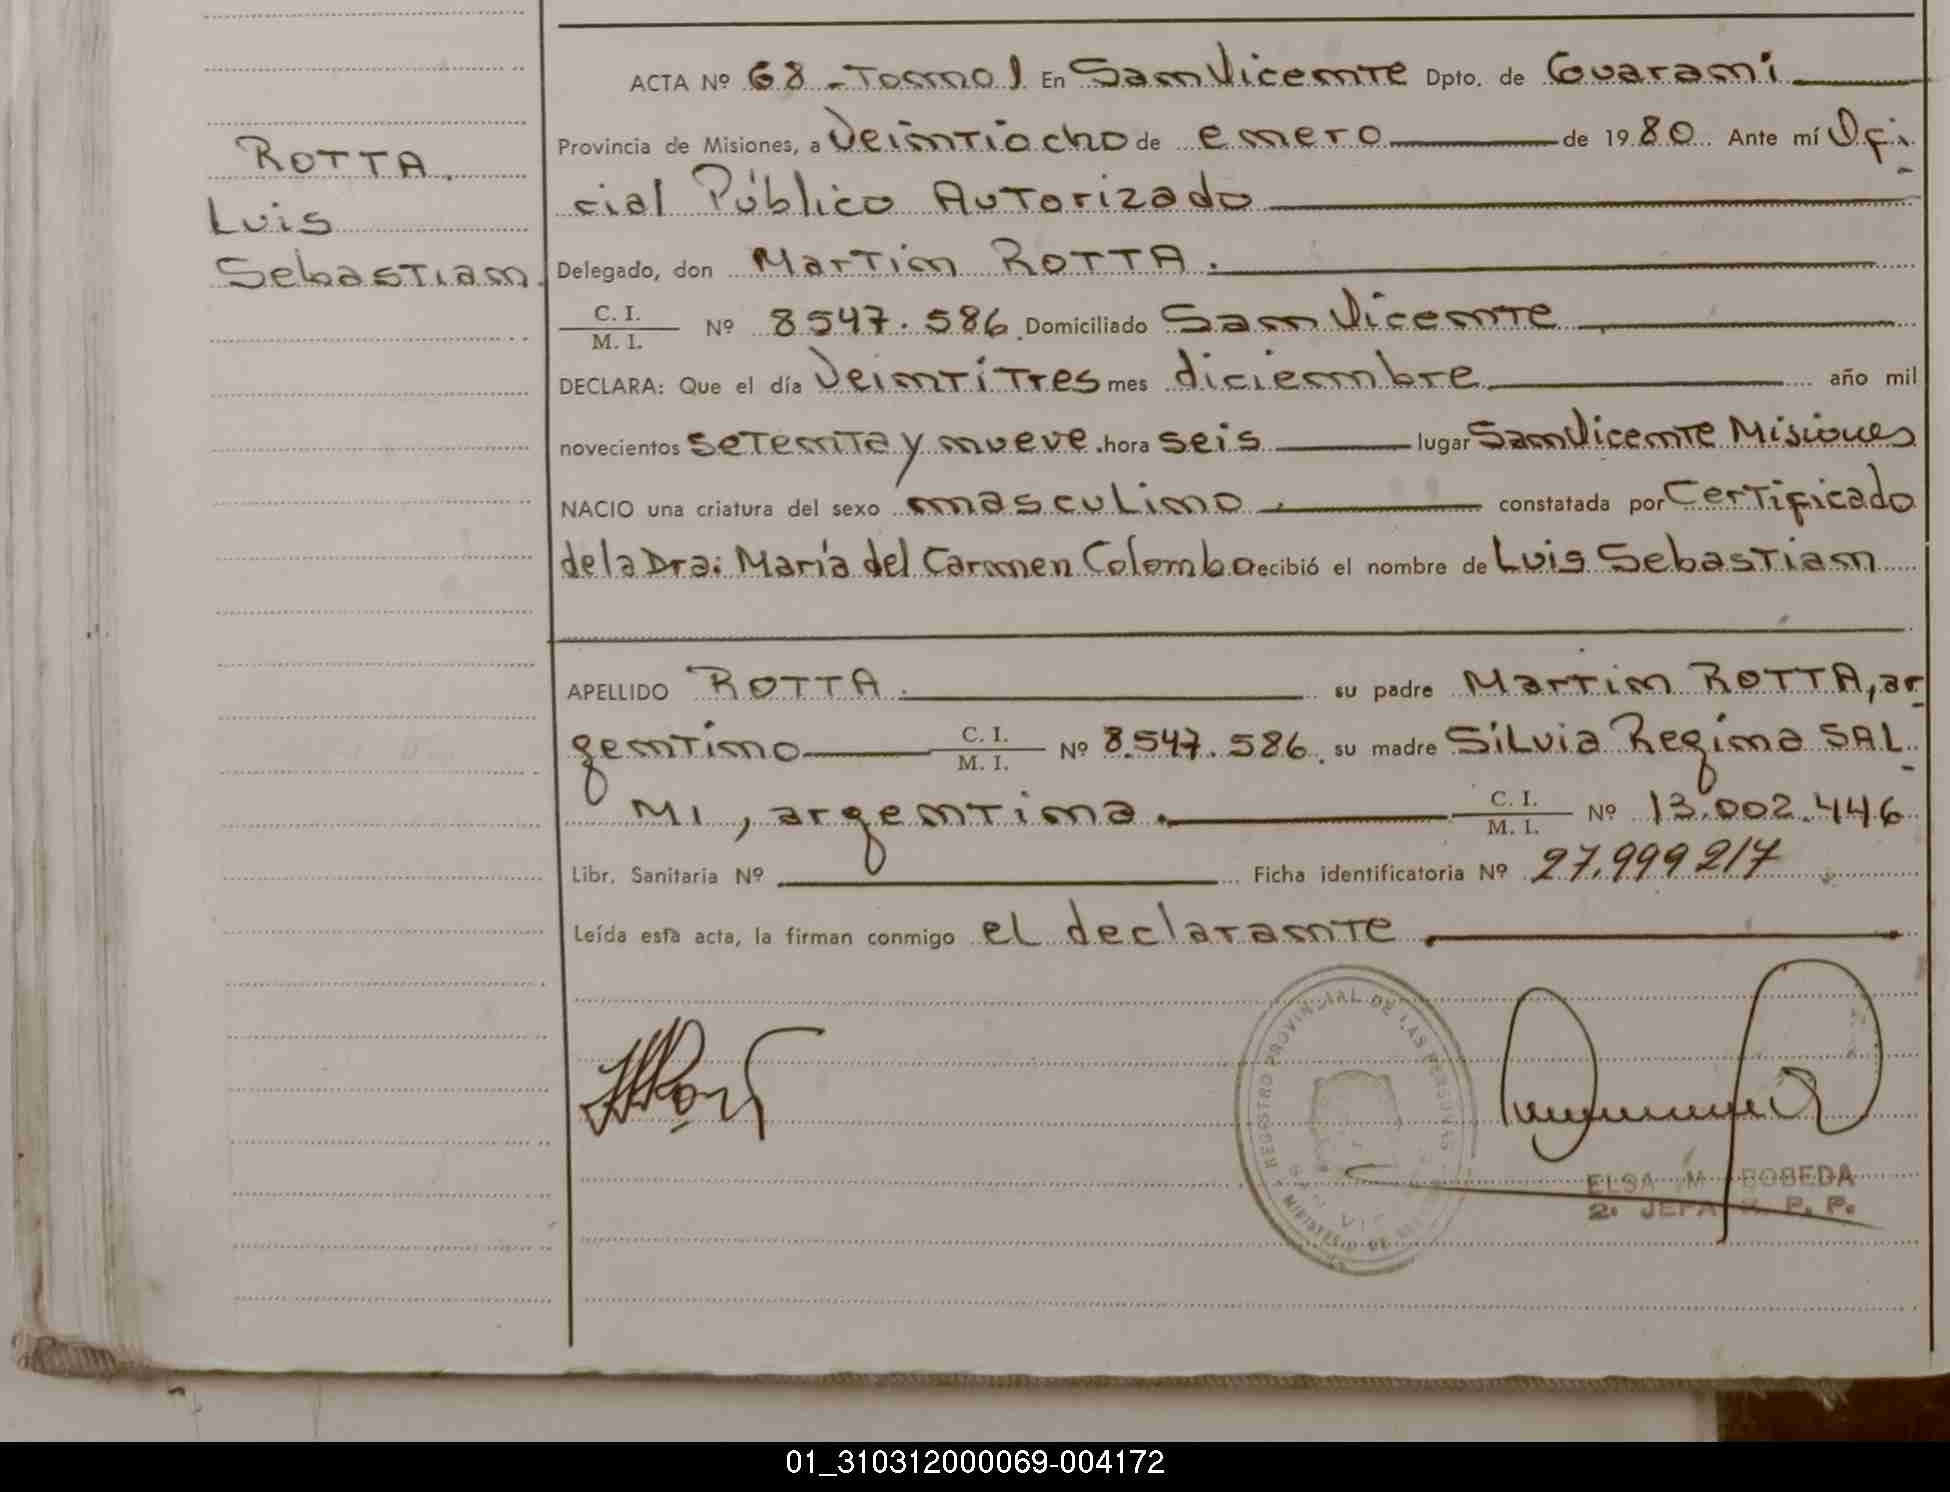 ACTA Nº 68 - Tomo 1 En San Vicente Dpto. de Guaraní
Provincia de Misiones, a Veintiocho de enero de 1980. Ante mí Ofi-
cial Público Autorizado
Delegado, don Martin ROTTA.
C. I.
M. I. Nº 8547.586. Domiciliado San Vicente
DECLARA: Que el día Veintitres mes diciembre año mil
novecientos setenta y nueve. hora seis lugar San Vicente Misiones
NACIO una criatura del sexo masculino. constatada por Certificado
de la Dra: María del Carmen Colombo recibió el nombre de Luis Sebastian
ROTTA.
Luis
Sebastian.
APELLIDO ROTTA. su padre Martin ROTTA, ar-
gentino C. I.
M. I. Nº 8.547.586. su madre Silvia Regina SAL-
MI, argentina. C. I.
M. I. Nº 13.002.446
Libr. Sanitaria Nº Ficha identificatoria Nº 27.999217
Leída esta acta, la firman conmigo el declarante
REGISTRO PROVINCIAL DE LAS PERSONAS
MINISTERIO DE
ELSA M. BOBEDA
2º JEFA R. P. P.
01_310312000069-004172